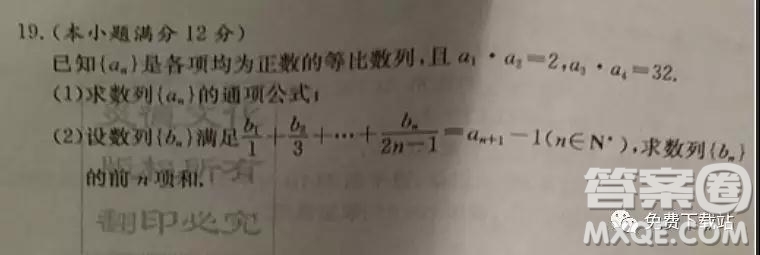 19.(本小题满分12分)
已知{aₙ}是各项均为正数的等比数列,且a₁·a₂=2,a₃·a₄=32.
(1)求数列{aₙ}的通项公式;
(2)设数列{bₙ}满足b₁/1+b₂/3+…+bₙ/(2n-1)=aₙ₊₁-1(n∈N*),求数列{bₙ}
的前n项和.
版权所有
翻印必究
答案圈
免费下载站
MXQE.COM